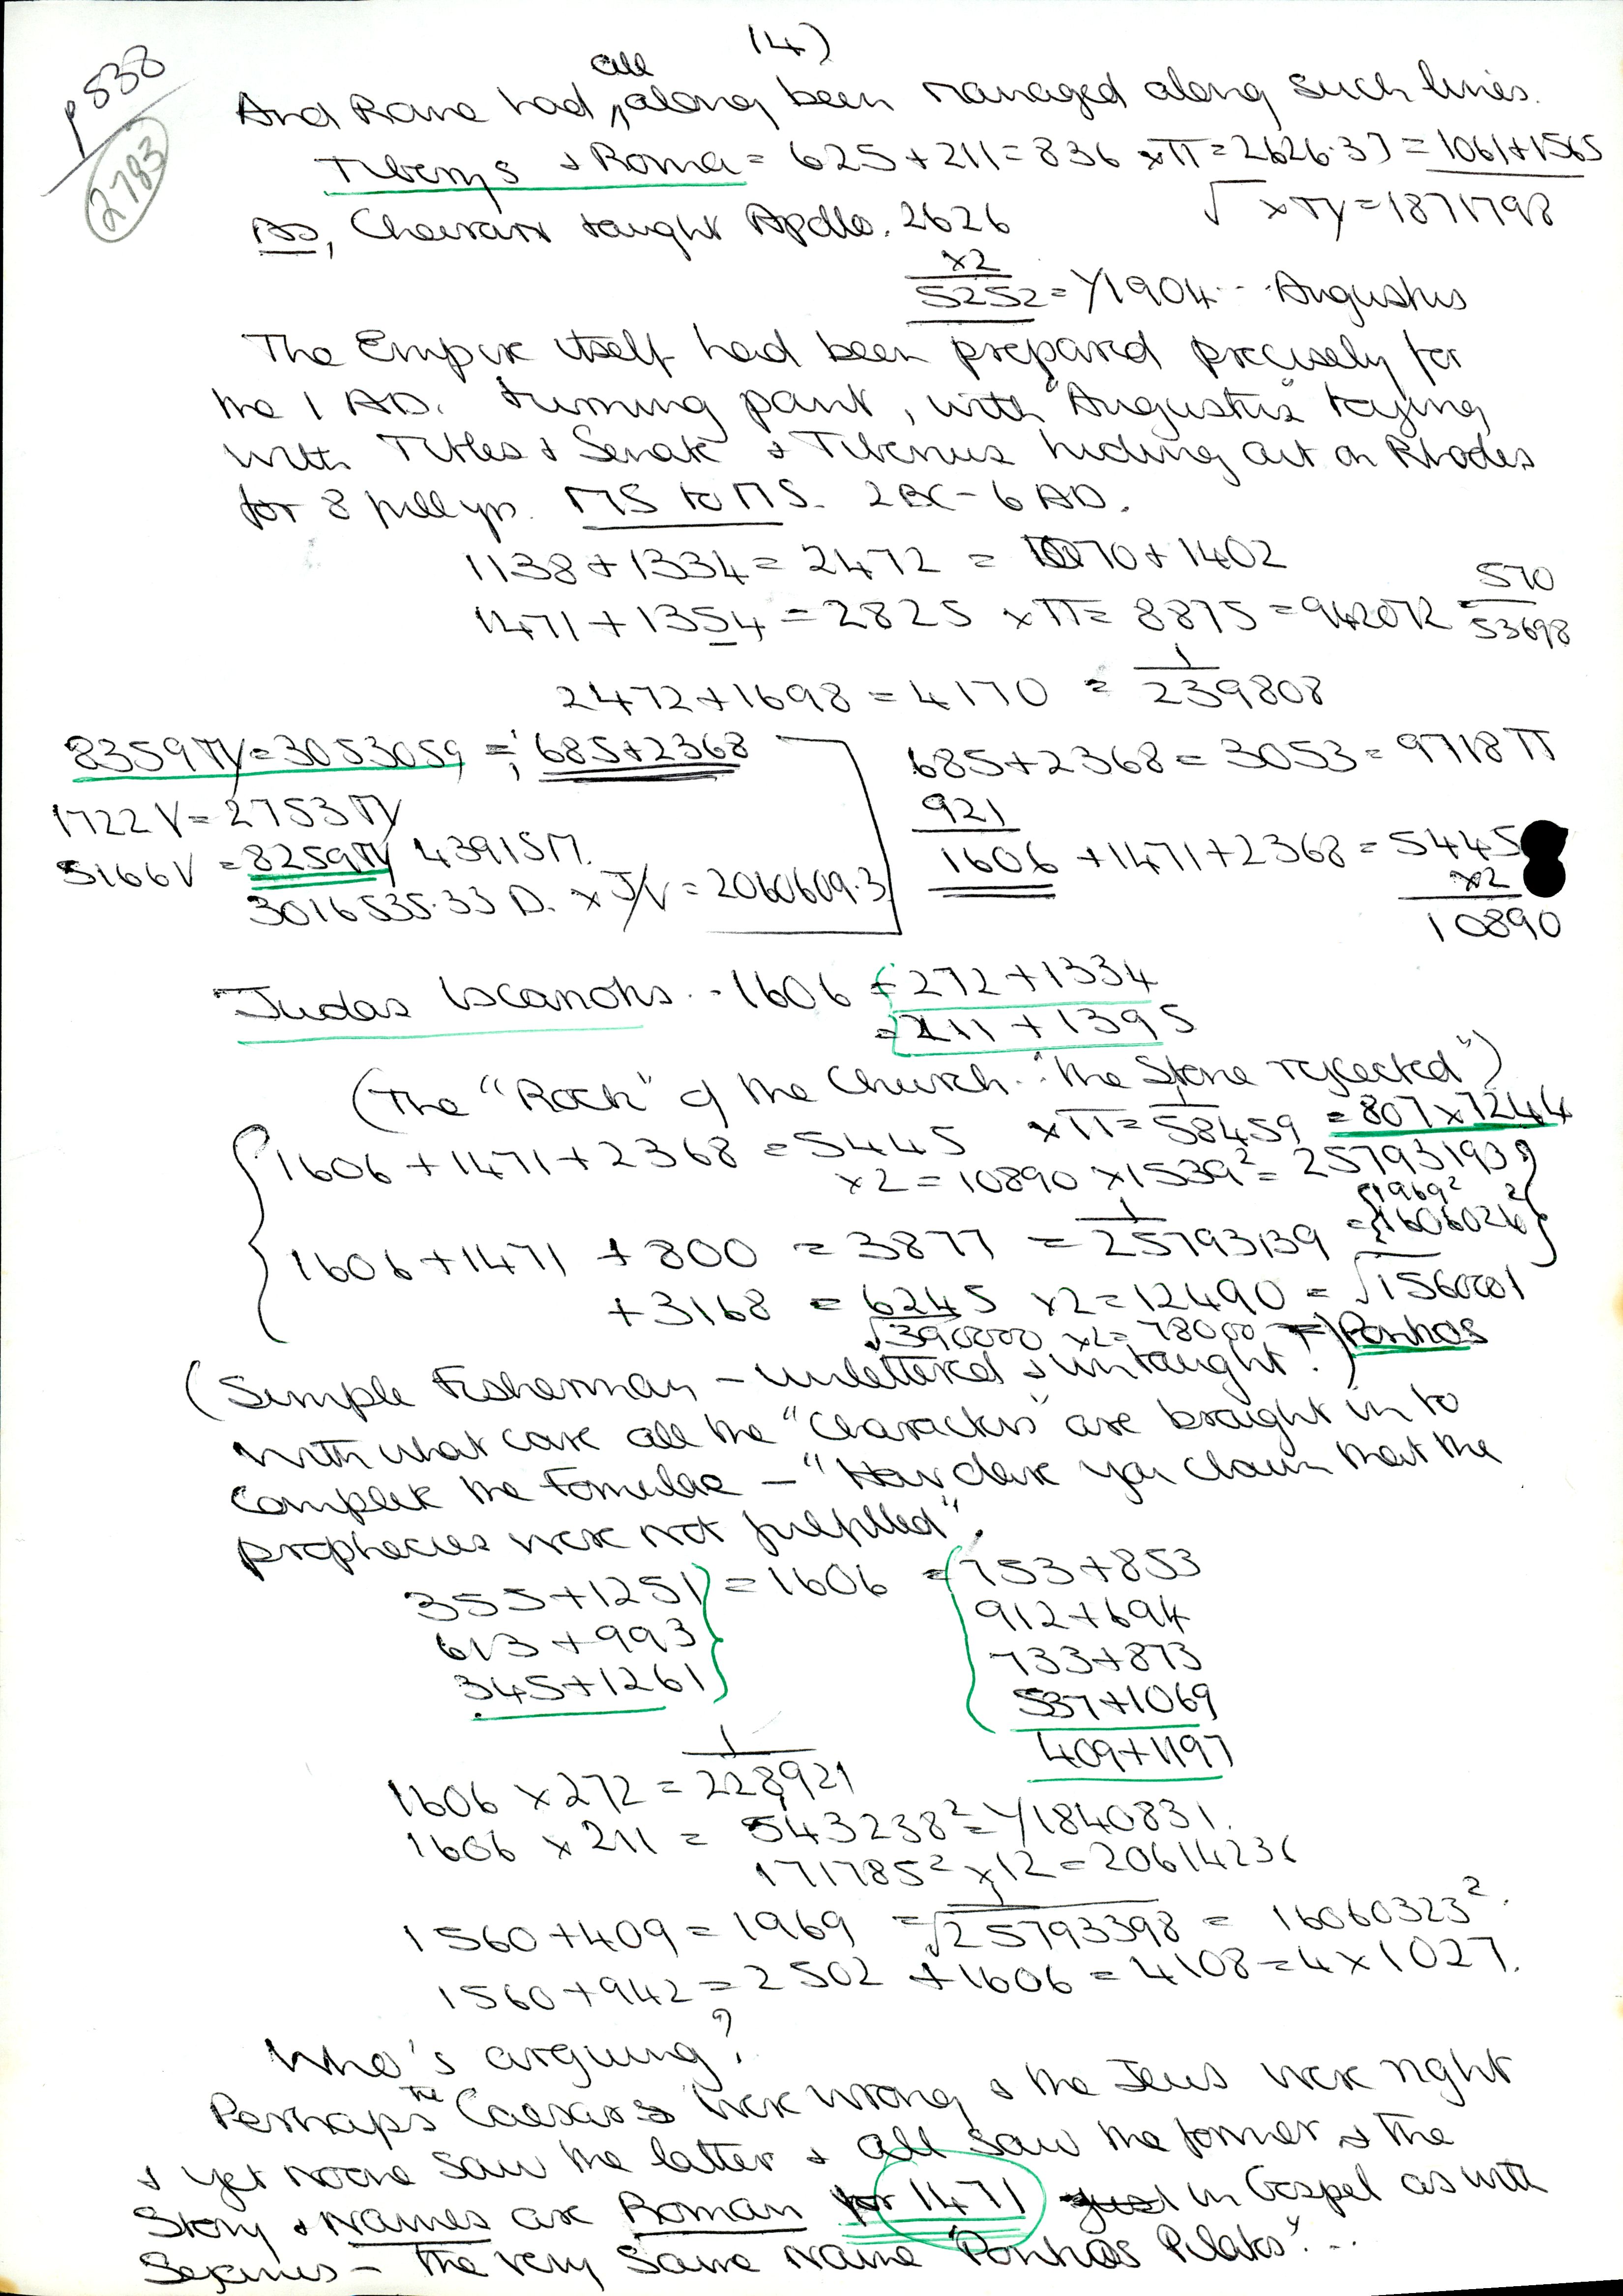 (4)
p 538
2783
And Rome had all along been managed along such lines.
Tiberiys + Roma = 625+211=836 xΠ=2626.37=1061+1565
As, Cheiron taught Apollo. 2626
√ xΠ/Y=1871798
x2
5252=Y1904... Augustus
The Empire itself had been prepared precisely for
the 1 AD. turning point, with "Augustus" toying
with Titles & Senate & Tiberius hiding out on Rhodes
for 8 full yrs. MS to MS. 2BC-6AD.
1138+1334=2472 = 1070+1402
1471+1354=2825 xΠ= 8875=942072 570
53698
2472+1698=4170 = 1
239808
8359Π/Y=3053059 = 685+2368
685+2368=3053=9718Π
1722V=2753Π/Y
921
5166V=8259Π/Y 43915M.
1606+1471+2368=5445
x2
3016535.33 D. xJ/V=2060609.3
10890
Judas Iscariotis..1606 =272+1334
=211+1395
(The "Rock" of the Church. "the Stone rejected")
1606+1471+2368=5445 xΠ= 1
58459 =807x7244
x2=10890x1539²=257931939
1606+1471+800=3877 = 1
25793139 = 1969²
1606026²
+3168=6245 x2=12490=√1560001
√390000 x2=78000 =) Pontios
(Simple Fisherman - unlettered & untaught!)
With what care all the "Characters" are brought in to
complete the Formulae - "How dare you claim that the
prophecies were not fulfilled".
355+1251 =1606 =753+853
613+993 912+694
345+1261 733+873
537+1069
409+1197
1606x272= 1
228921
1606x211= 543238²=Y1840831.
171785²x12=20614236
1560+409=1969 =√1
25793398 = 16060323².
1560+942=2502 +1606=4108=4x1027.
Who's arguing?
Perhaps The Caesars were wrong & the Jews were right
& yet noone saw the latter & all saw the former & the
Story & Names are Roman for 1471 just in Gospel as with
Sejanus - the very same name "Pontios Pilatos"...